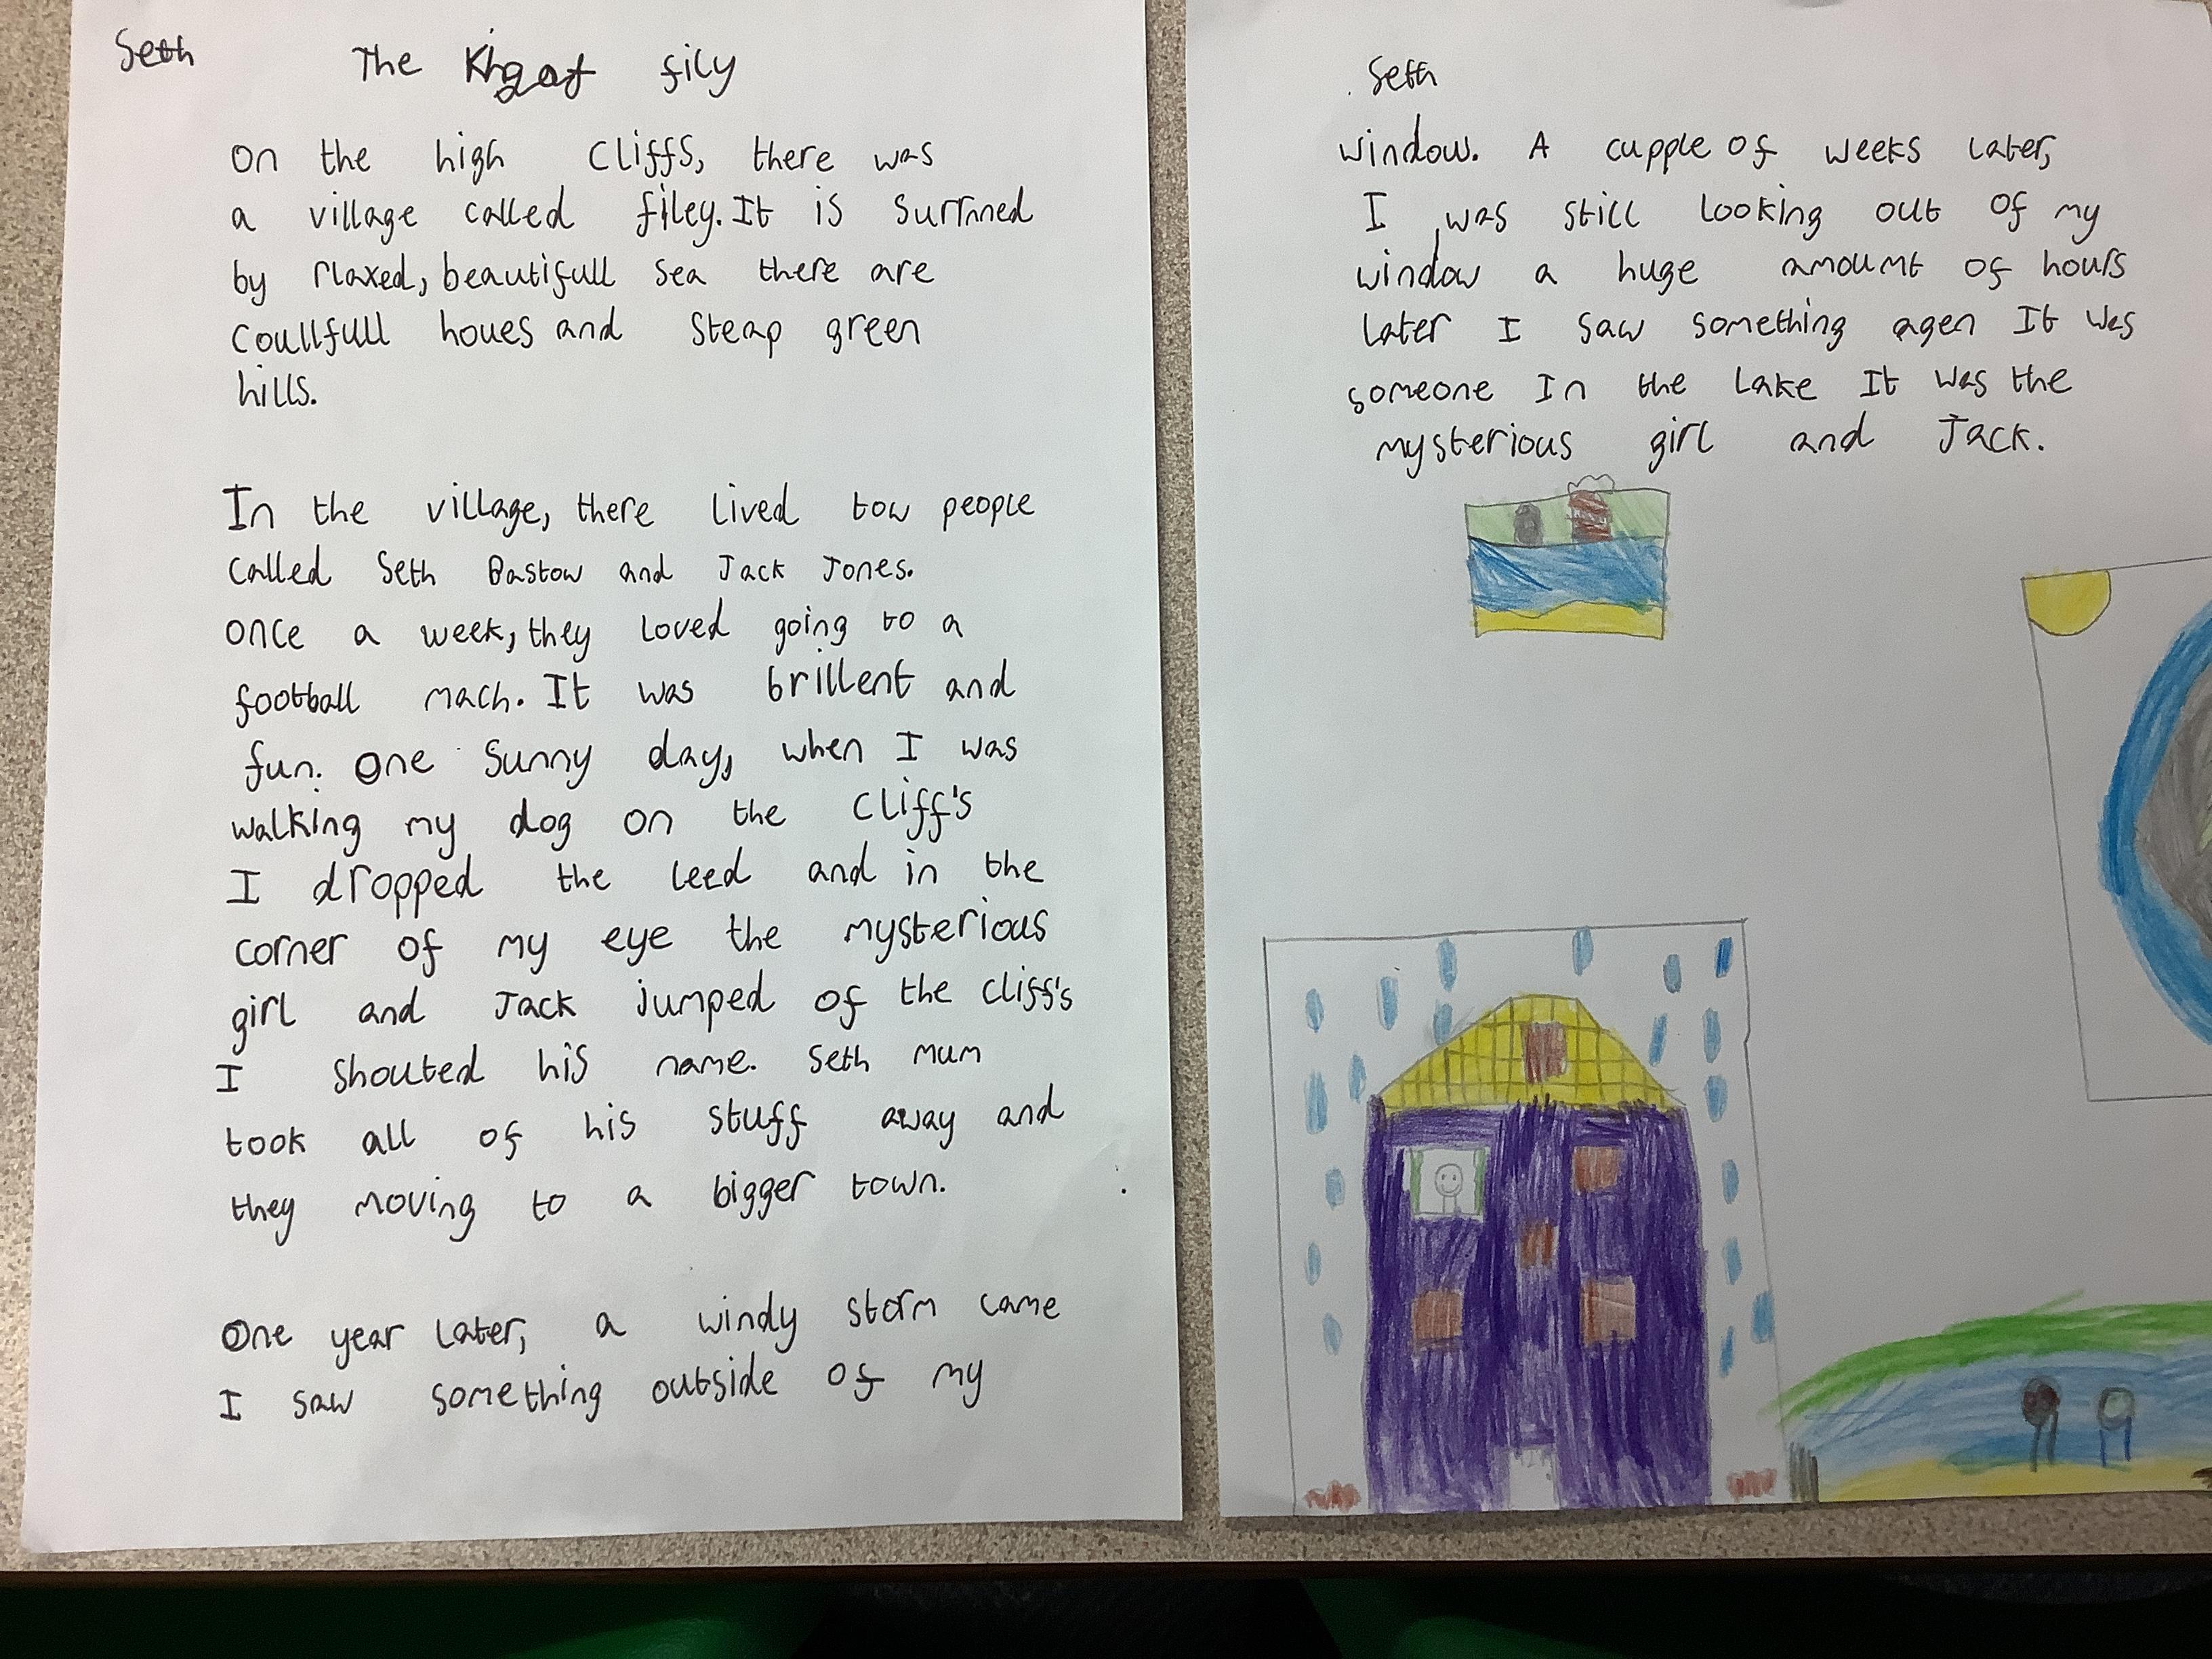 Seth
The fily
on the high cliffs, there was
a village called filey. It is surrnned
by rlaxed, beautifull sea there are
coullfull houes and steap green
hills.
In the village, there lived tow people
called Seth Bastow and Jack Jones.
once a week, they loved going to a
football mach. It was brillent and
fun. One sunny day, when I was
walking my dog on the cliff's
I dropped the leed and in the
corner of my eye the mysterious
girl and Jack jumped of the cliff's
I shouted his name. Seth mum
took all of his stuff away and
they moving to a bigger town.
One year later, a windy storm came
I saw something outside of my
Seth
window. A cupple of weeks later,
I was still looking out of my
window a huge amoumt of hours
later I saw something agen It was
someone In the lake It was the
mysterious girl and Jack.